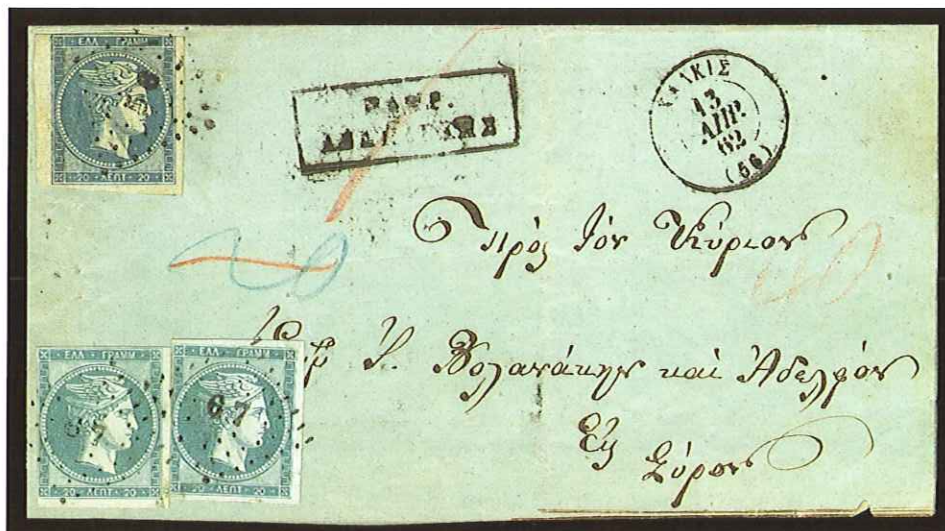 ΕΛΛ ΓΡΑΜΜ
20 ΛΕΠΤ 20
ΧΑΛΚΙΣ
13
ΑΠΡ.
62
(56)
Πρὸς Τὸν Κύριον
20
Βολανάκην καὶ Ἀδελφὸν
Εἰς
Σύρον
ΕΛΛ ΓΡΑΜΜ
67
20 ΛΕΠΤ 20
ΕΛΛ ΓΡΑΜΜ
67
20 ΛΕΠΤ 20